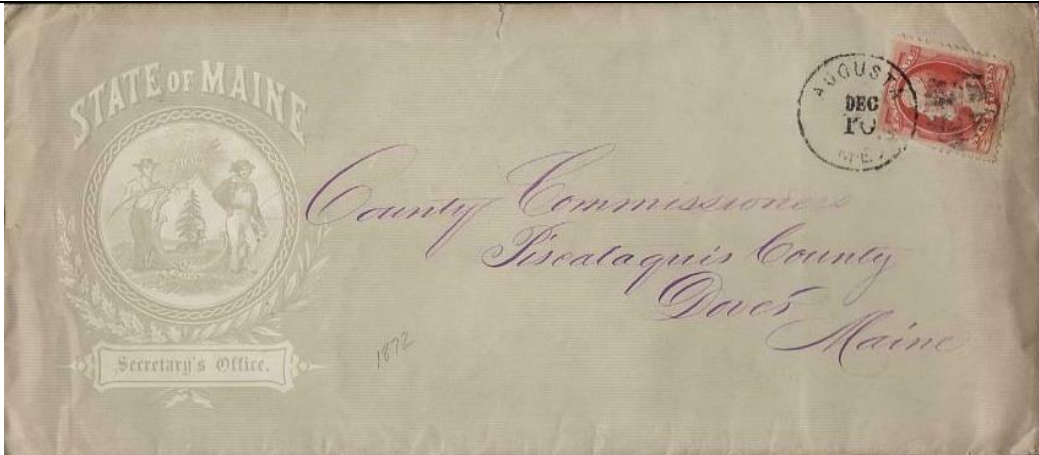 STATE OF MAINE
Secretary's Office.
AUGUSTA
DEC
10
ME.
County Commissioners
Piscataquis County
Dover
Maine
1872